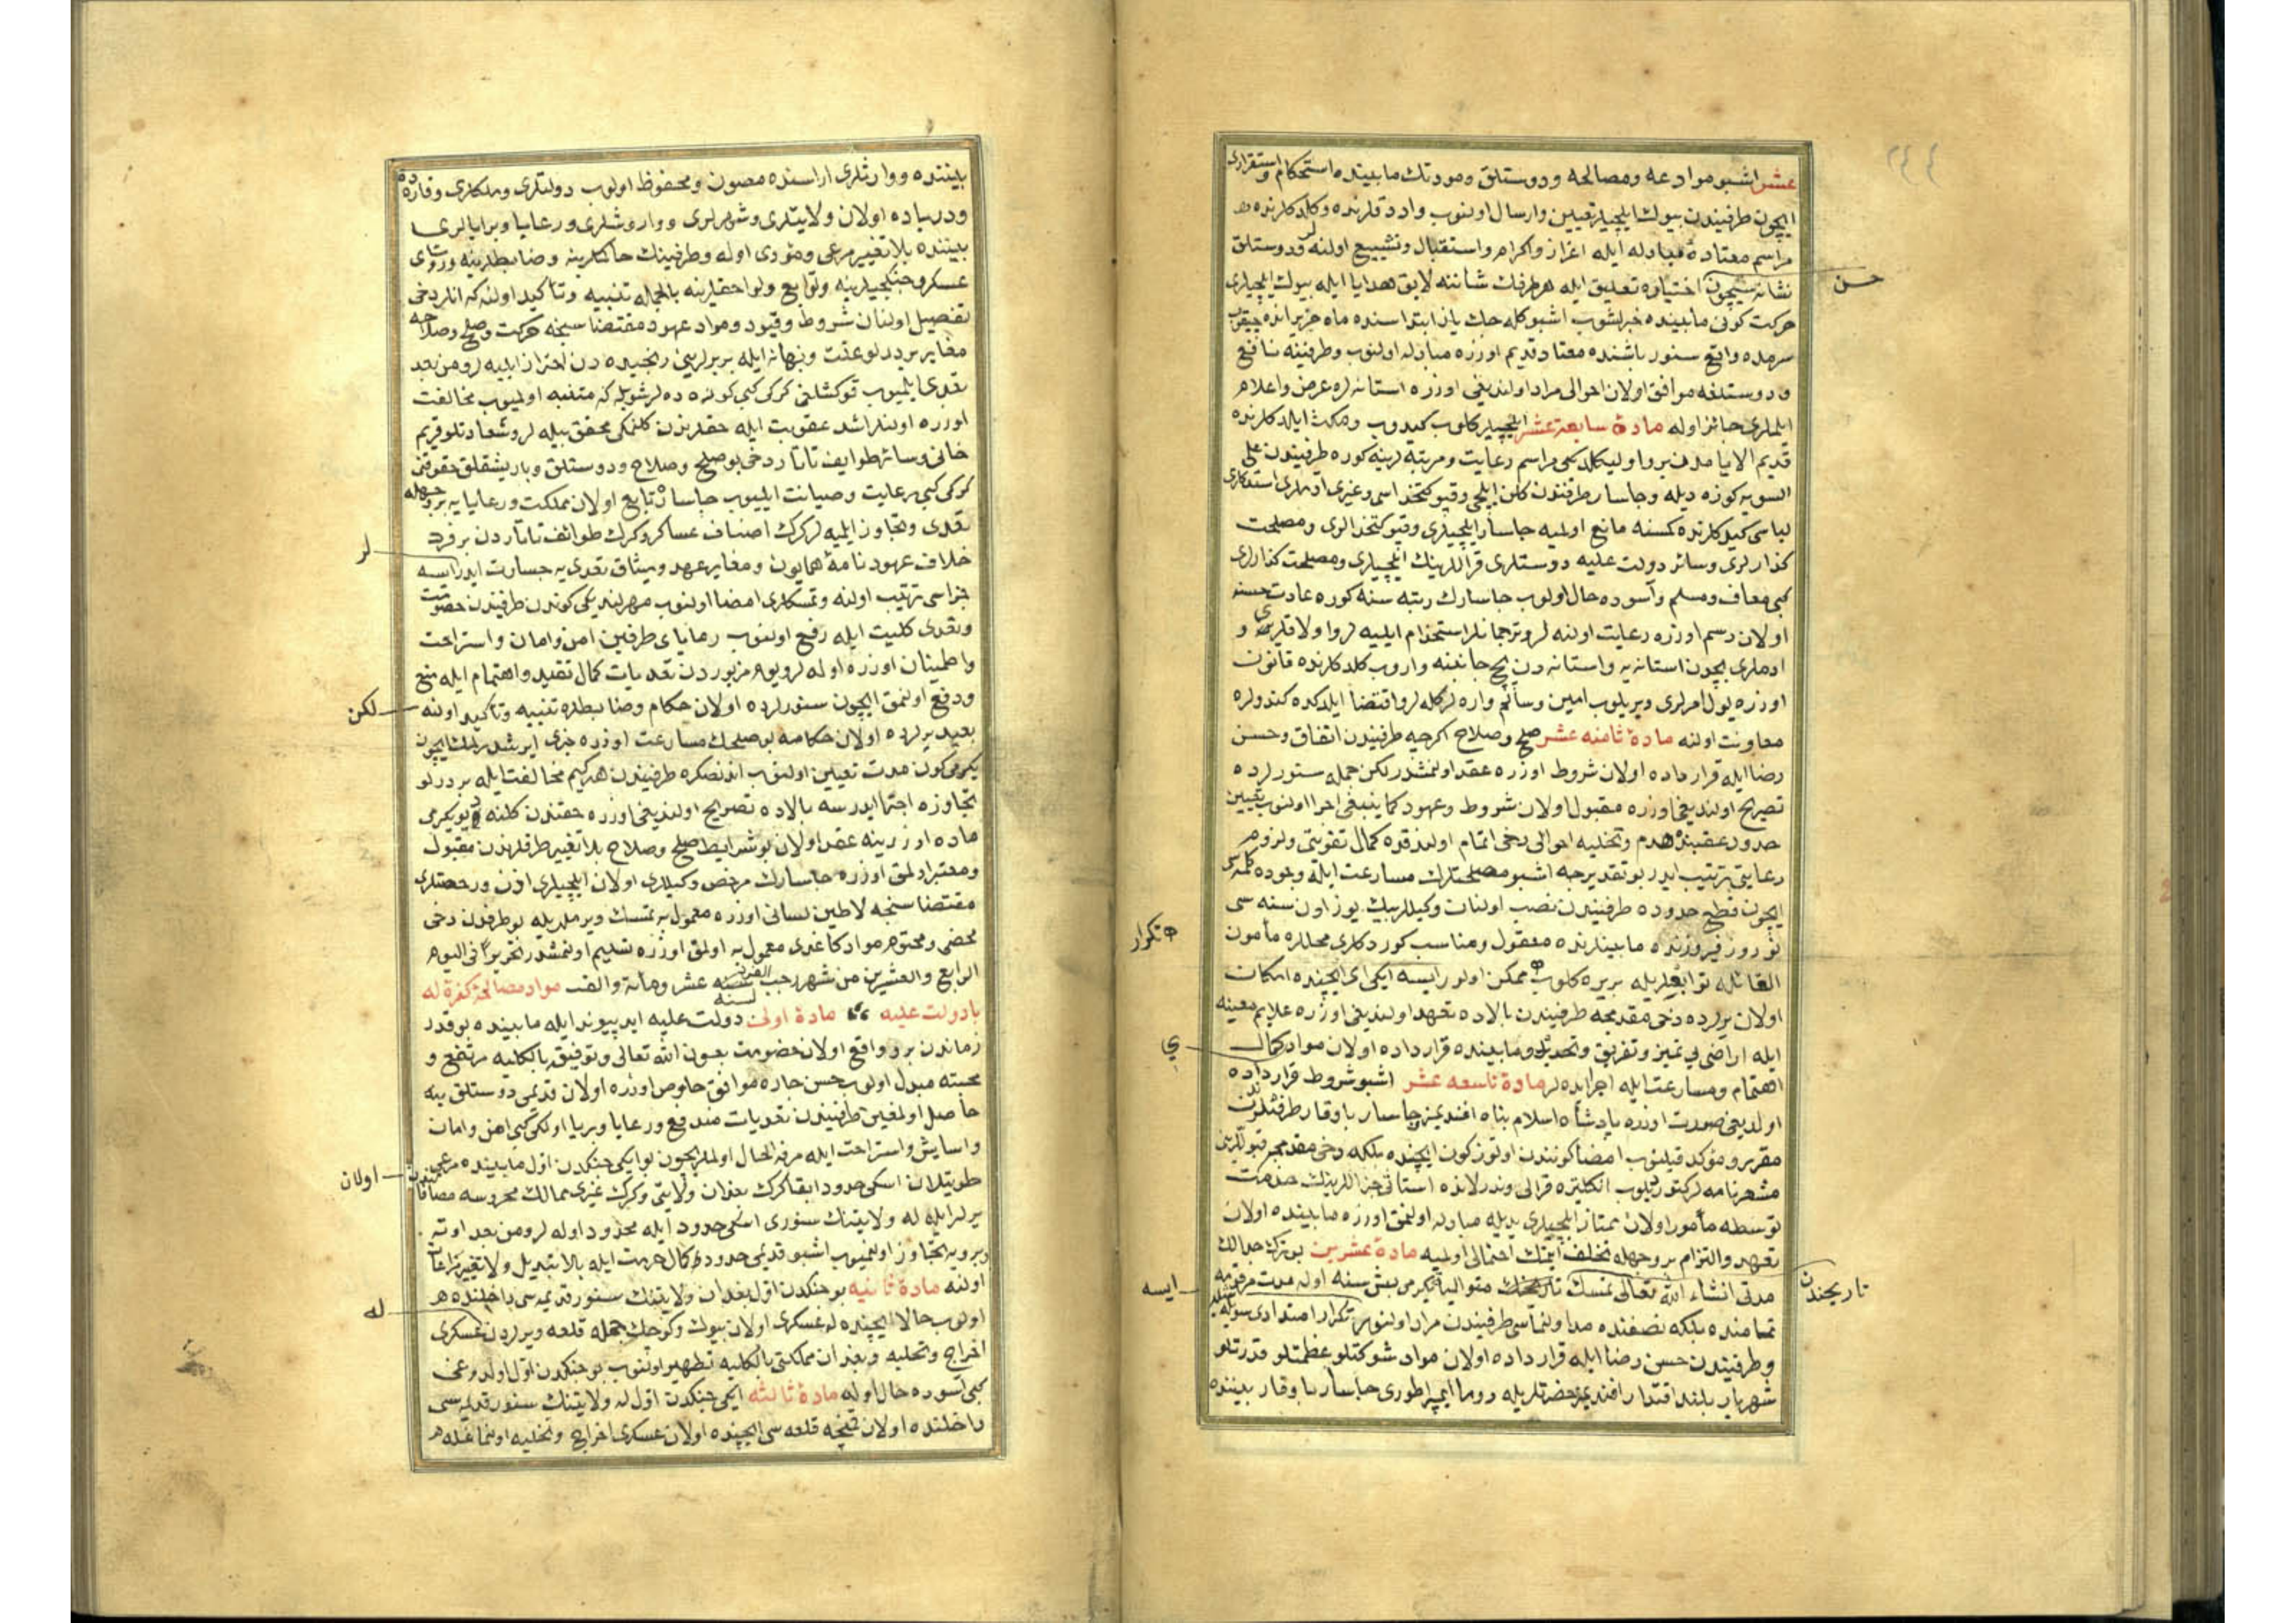 عشر اشبو موادعه ومصالحه ودوستلق ومودتك مابينده استحكام واستقرارى
ايچون طرفيندن بيوك ايلچيلر تعيين وارسال اولنوب واردقلرنده وكلدكلرنده
مراسم معتادۀ مبادله ايله اعزاز واكرام واستقبال وتشييع اولنه لر ودوستلق
نشانه سيچون اختيارى تعليق ايله هر طرفك شاننه لايق هدايا ايله بيوك ايلچيلرى
حسن
حركت كونى مابينده خبرلشوب اشبو كله جك ياز ابتداسنده ماه حزيرانده
سرمده واقع سنور باشنده معتاد قديم اوزره مبادله اولنوب وطرفينه نافع
ودوستلغه موافق اولان احوالى مراد اولنديغى اوزره استانه لره عرض واعلام
ايلملرى جائز اوله مادۀ سابعۀ عشر ايلچيلر كلوب كيدوب ومكث ايلدكلرنده
قديم الايامدن برو اوليكلديكى مراسم رعايت ومرتبه لرينه كوره طرفيندن على
السويه كوزه ديله وچاسار طرفندن كلن ايلچى وقپوكتخداسى وغيرى ادملرى استدكلرى
لباسى كيدكلرنده كمسنه مانع اولميه چاسار ايلچيلرى وقپوكتخدالرى ومصلحت
كذارلرى وسائر دولت عليه دوستلرى قراللرينك ايلچيلرى ومصلحت كذارلرى
كبى معاف ومسلم وآسوده حال اولوب چاسارك رتبه سنه كوره عادت حسنه
اولان رسم اوزره رعايت اولنه لر وترجمانلر استخدام ايليه لر واولاقلرى و
ادملرى بچون استانه يه واستانه دن بچ جانبنه واروب كلدكلرنده قانون
اوزره يول امرلرى ويريلوب امين وسالم واره لر كله لر واقتضا ايلدكده كندولره
معاونت اولنه مادۀ ثامنه عشر صلح وصلاح اكرچه طرفيندن اتفاق وحسن
رضا ايله قرار داده اولان شروط اوزره عقد اولنمشدر لكن جمله سنورلرده
تصريح اولنديغى اوزره مقبول اولان شروط وعهود كما ينبغى اجرا اولنوب تعيين
حدود عقبنده هدم وتخليه احوالى دخى اتمام اولندقده كمال تقويتى ولزوم
رعايتى ترتيب ايدر بو تقديرجه اشبو مصلحتلرك مسارعت ايله وجوده كلمه سى
ايچون قطع حدوده طرفيندن نصب اولنان وكيللربيك يوز اون سنه سى
نوروز فيروزنده مابينلرنده معقول ومناسب كوردكلرى محللره مأمون
تكرار
القائله توابعلريله بريره كلوب ممكن اولور ايسه ايكى اى ايچنده امكان
اولان يرلرده دخى مقدمجه طرفيندن بالاده تعهد اولنديغى اوزره علايم معينه
ايله اراضى يي تميز وتفريق وتحديد ومابينده قرار داده اولان مواد كمال
ي
اهتمام ومسارعت ايله اجرا ايده لر مادۀ تاسعه عشر اشبو شروط قرار داده
اولديغى صورت اوزره پادشاه اسلام پناه افنديمز وچاسار باوقار طرفلرندن
مقرر ومؤكد قيلنوب امضا كونندن اوتوز كون ايچنده بلكه دخى مقدمجه قبوللرين
مشعر نامه لر كتوريلوب انكلتره قرالى وندرلانده استاتى جنراللرينك خدمت
توسطه مأمور اولان ممتاز ايلچيلرى يديله مبادله اولنمق اوزره مابينده اولان
تعهد والتزام بر وجهله تخلف ايتمك احتمالى اولميه مادۀ عشرين بو ترك جدالك
مدتى انشاء الله تعالى تمسك متواليا يكرمى بش سنه اوله مدت مرقومه
تاريخندن
ايسه
تمامنده بلكه نصفنده مد اولنماسى طرفيندن مراد اولنور تكرار امتدادى سويلشه لر
وطرفيندن حسن رضا ايله قرار داده اولان مواد شوكتلو عظمتلو قدرتلو
شهريار بلند اقتدار افنديمز حضرتلريله روما ايمپراطورى چاسار باوقار بيننده
بيننده ووارثلرى اراسنده مصون ومحفوظ اولوب دولتلرى وملكلرى وقاره ده
ودرياده اولان ولايتلرى وشهرلرى وواروشلرى ورعايا وبرايالرى
بيننده بلا تغيير مرعى ومؤدى اوله وطرفينك حاكملرينه وضابطلرينه ورؤساى
عسكر وجنكجيلرينه وتوابع ولواحقلرينه بالجمله تنبيه وتأكيد اولنه كه انلر دخى
تفصيل اولنان شروط وقيود ومواد عهود مقتضاسنجه حركت وصلح وصلاحه
مغاير بر درلو علت وبهانه ايله بربرلريني رنجيده دن احتراز ايليه لر ومن بعد
تعدى ايلميوب قوكشلغى كركى كبى كوزه ده لر شويله كه متنبه اولميوب مخالفت
اوزره اولنلر اشد عقوبت ايله حقلرندن كلنمكى محقق بيله لر وشعادتلو قريم
خانى وسائر طوايف تاتار دخى بو صلح وصلاح ودوستلق وباريشقلق حقوقنى
كركى كبى رعايت وصيانت ايليوب چاساره تابع اولان مملكت ورعايايه بر وجهله
تعدى وتجاوز ايلميه لر كرك اصناف عساكر وكرك طوائف تاتاردن بر فرد
خلاف عهودنامۀ همايون ومغاير عهد وميثاق تعدى يه جسارت ايدر ايسه
لر
جزاسى ترتيب اولنه وتمسكلرى امضا اولنوب مهرلنديكى كوندن طرفيندن خصومت
وتعدى كليت ايله رفع اولنوب رعاياى طرفين امن وامان واستراحت
واطمينان اوزره اوله لر ويوم مزبوردن تعديات كمال تقيد واهتمام ايله منع
ودفع اولنمق ايچون سنورلرده اولان حكام وضابطلره تنبيه وتأكيد اولنه
لكن
بعيد يرلرده اولان حكامه بو صلحك مسارعت اوزره خبرى ايرشدرلمك ايچون
يكرمى كون مدت تعيين اولنوب اندنصكره طرفيندن هر كيم مخالفت ايله بر درلو
تجاوزه اجترا ايدرسه بالاده تصريح اولنديغى اوزره حقندن كلنه ديو يكرمى
ماده اوزرينه عقد اولان بو شرايط صلح وصلاح بلا تغيير طرفلرندن مقبول
ومعتبر اولمق اوزره چاسارك مرخص وكيللرى اولان ايلچيلرى اذن ورخصتلرى
مقتضاسنجه لاطين لسانى اوزره معمول به تمسك ويرملريله بو طرفدن دخى
ممضى ومختوم مواد كاغدى معمول به اولمق اوزره تسليم اولنمشدر تحريرا فى اليوم
الرابع والعشرين من شهر رجب لسنه عشر ومائة والف مواد مصالحۀ كفرۀ له
با دولت عليه مادۀ اولى دولت عليه ابد پيوند ايله مابينده بو قدر
زماندن برو واقع اولان خصومت بعون الله تعالى وتوفيقه بالكليه مرتفع و
محبته مبدل اولوب حسن جاره موافق خلوص اوزره اولان قديمى دوستلق ينه
حاصل اولمغين طرفيندن تعديات مندفع ورعايا وبرايا اولكى كبى امن وامان
واسايش واستراحت ايله مرفه الحال اولملر ايچون بو ايكى جنكدن اول مابينده مرعى
طوتيلان اسكى حدود ابقا كرك بغدان ولايتى وكرك غيرى ممالك محروسه مضافاتندن
اولان
يرلر ايله له ولايتنك سنورى اسكى حدود ايله محدود اوله لر ومن بعد اوته
وبرويه تجاوز اولنميوب اشبو قديمى حدوده كمال حرمت ايله بلا تبديل ولا تغيير مراعات
اولنه مادۀ ثانيه بو جنكدن اول بغدان ولايتنك سنور قديمه سى داخلنده
اولوب حالا ايچنده له عسكرى اولان بيوك وكوچك جمله قلعه ويرلردن عسكرى
له
اخراج وتخليه وبغدان مملكتى بالكليه تطهير اولنوب بو جنكدن اول اولدوغى
كبى آسوده حال اوله مادۀ ثالثه ايكى جنكدن اول له ولايتنك سنور قديمه سى
داخلنده اولان قمنيچه قلعه سى ايچنده اولان عسكرى اخراج وتخليه اولنماغله